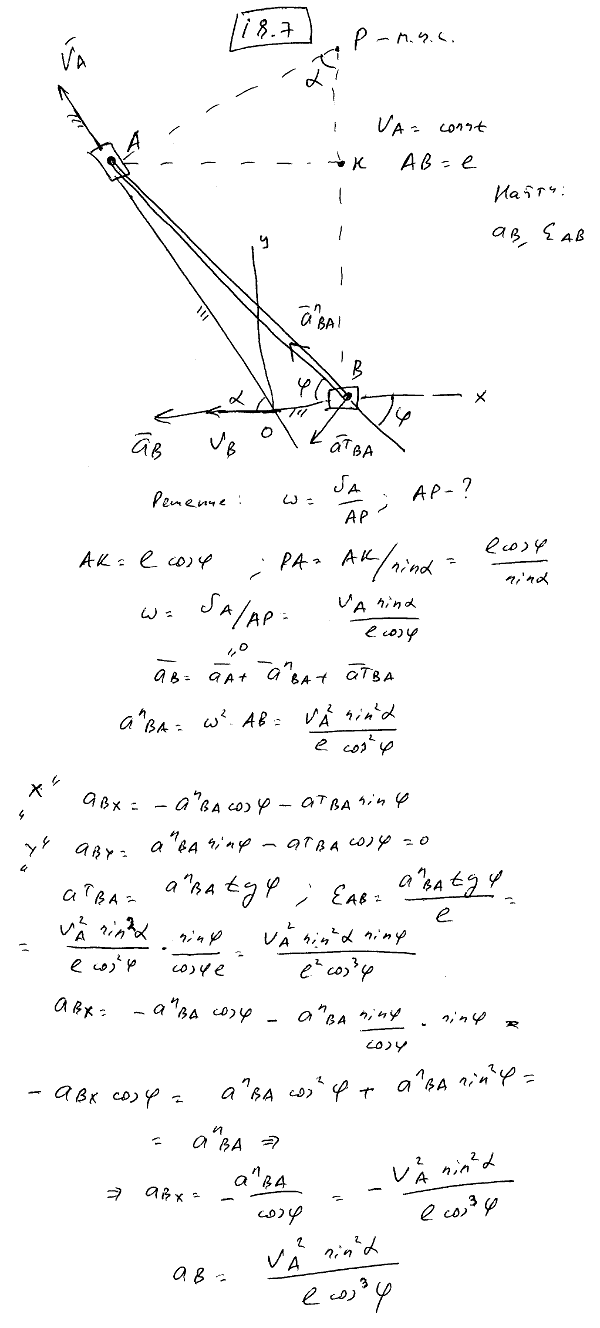 18.7
V̄A
P – м.ц.с.
α
VA = const
A
K AB = l
Найти:
aB, εAB
y
āⁿBA
B
α O φ φ x
āB VB āτBA
Решение: ω = VA/AP; AP - ?
AK = l cosφ ; PA = AK/sinα = l cosφ / sinα
ω = VA/AP = VA sinα / l cosφ
āB = āA + āⁿBA + āτBA
"0
aⁿBA = ω² · AB = VA² sin²α / l cos²φ
"x" aBX = - aⁿBA cosφ - aτBA sinφ
"y" aBY = aⁿBA sinφ - aτBA cosφ = 0
aτBA = aⁿBA tgφ ; εAB = aⁿBA tgφ / l =
= VA² sin²α / l cos²φ · sinφ / cosφ l = VA² sin²α sinφ / l² cos³φ
aBX = - aⁿBA cosφ - aⁿBA sinφ / cosφ · sinφ =
- aBX cosφ = aⁿBA cos²φ + aⁿBA sin²φ =
= aⁿBA ⇒
⇒ aBX = - aⁿBA / cosφ = - VA² sin²α / l cos³φ
aB = VA² sin²α / l cos³φ